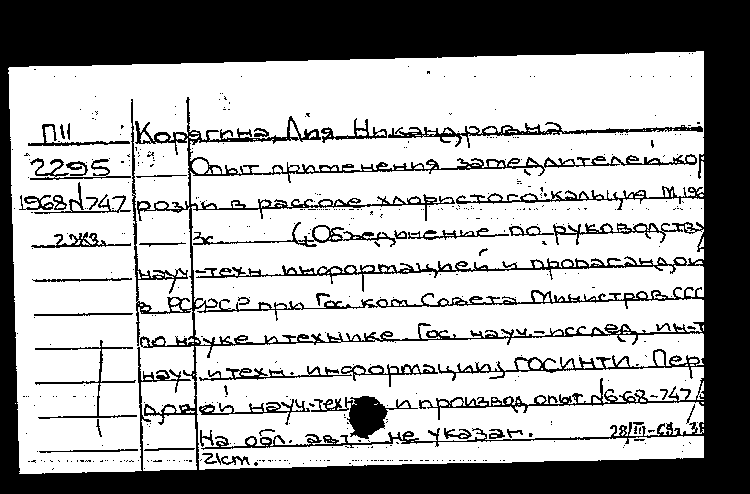 П11 Корягина, Лия Никандровна
2295 Опыт применения замедлителей кор
1968 N 747 розии в рассоле хлористого кальция М, 196
2 экз. 3с. (Объединение по руководству
науч-техн информацией и пропагандой
в РСФСР при Гос. ком. Совета Министров ССС
по науке и технике Гос. науч.-исслед. ин-т
науч. и техн. информации, ГОСИНТИ. Пере
довой науч.-техн и производ. опыт. N 6-68-747/
На обл. авт не указан. 28/III-68г.
2/ст.